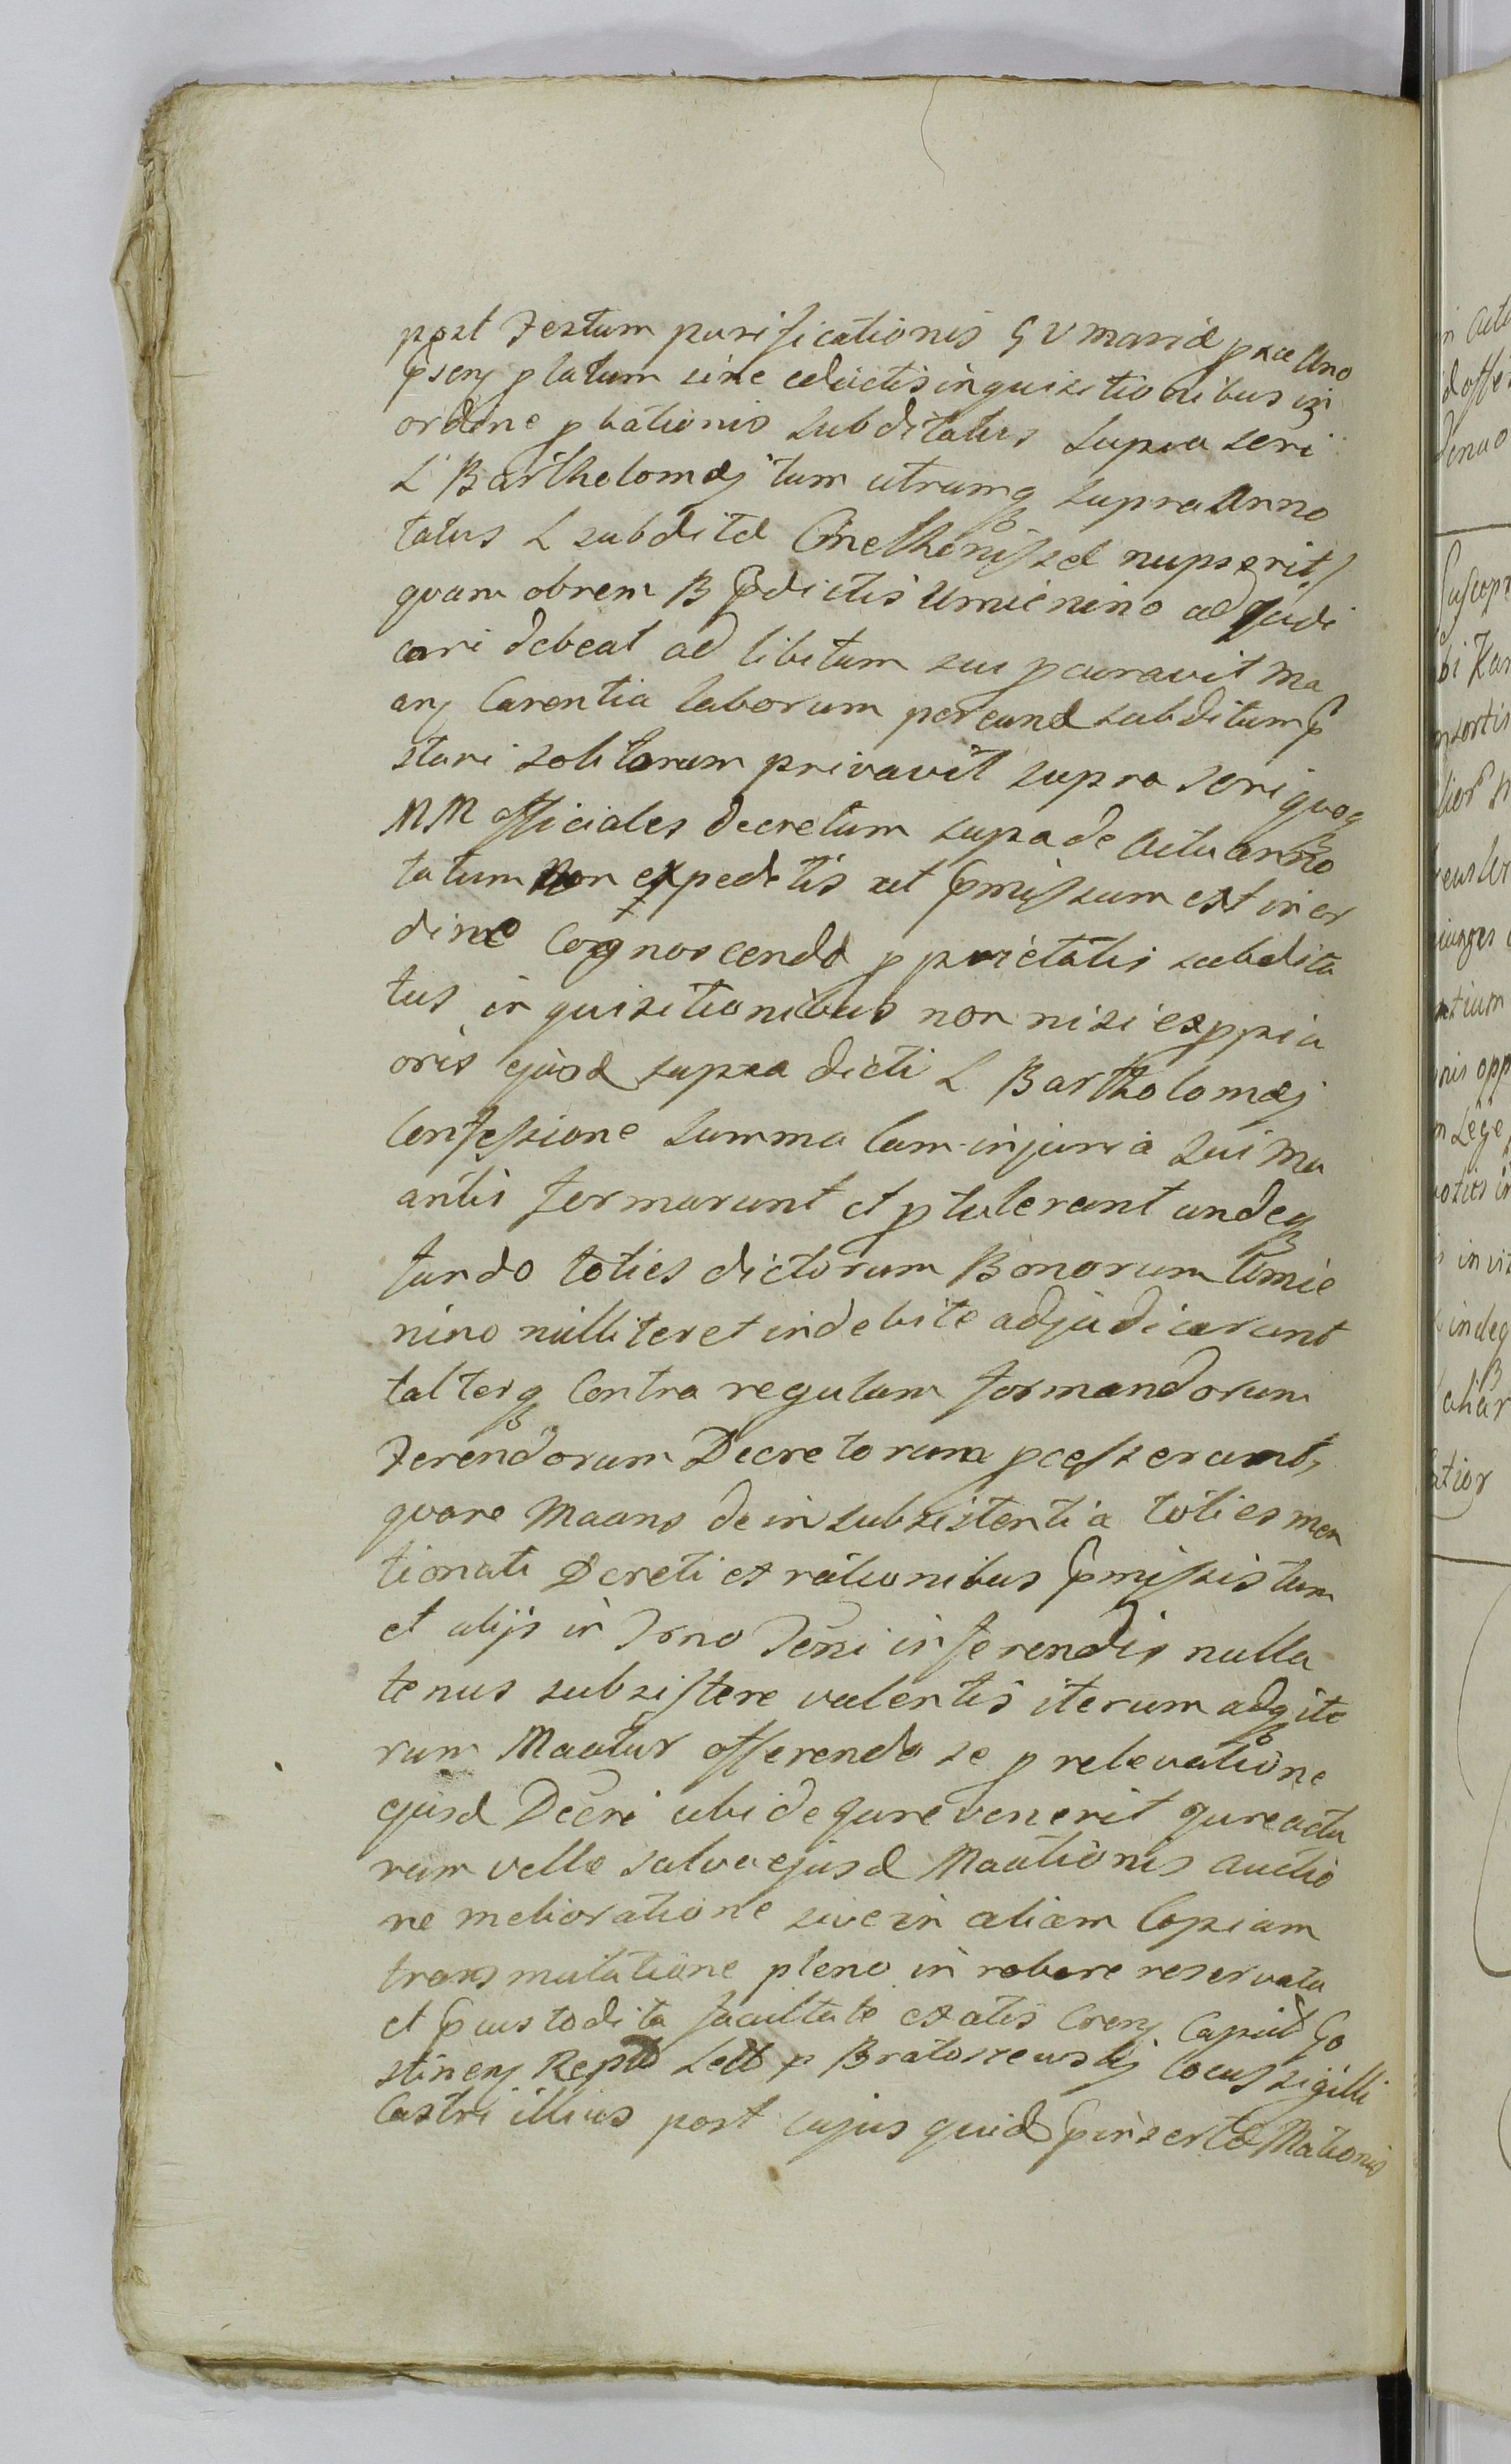 post Festum purificationis G V Mariæ pxæ Ano
Psen platum sine eductis inquisitionibus in
ordine pbationis subditatus supra seri
L Bartholomæj tum utrumq supra Anno
tatus L subditæ nupserit
quam obrem B Pdictis Umienino adjudi
cari debeat ad libitum sui pcuravit Ma
any Carentia laborum per eund subditum P
stari solitorum privavit supra seri quoq
MM officiales decretum supra de Actu anno
tatum non expeditis ut Pmissum est in or
dine Cognoscendæ pprietatis subdita
tus inquisitionibus non nisi ex ppria
oris ejusd supra dicti L Bartholomæj
Confessione summa Cum injuria sui Ma
antis formarunt et ptulerunt undeq
fundo toties dictorum Bonorum Umie
nino nulliter et indebite adjudicarunt
talterq Contra regulam formandorum
Ferendorum Decretorum pcesserunt,
quare Maans de insubsistentia toties men
tionati Dcreti ex rationibus Pmissis tum
et alijs in Trno Termi inferendis nulla
tenus subsistere valentis iterum adq ite
rum Maatur offerendo se p relevatione
ejusd Decri ubi de Jure venerit Jure actu
rum velle salva ejusd Maationis auctio
ne melioratione sive in aliam Copiam
transmutatione pleno in robore reservata
et Pcustodita facultate ex atis Cren Capitd Go
stinen Reptd Lect p Bratoszewskj Locus sigilli
Castri illius post cujus quid Pinsertæ Mationis